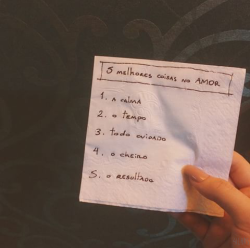 5 melhores coisas no AMOR
1. A calma
2. o tempo
3. todo cuidado
4. o cheiro
5. o resultado